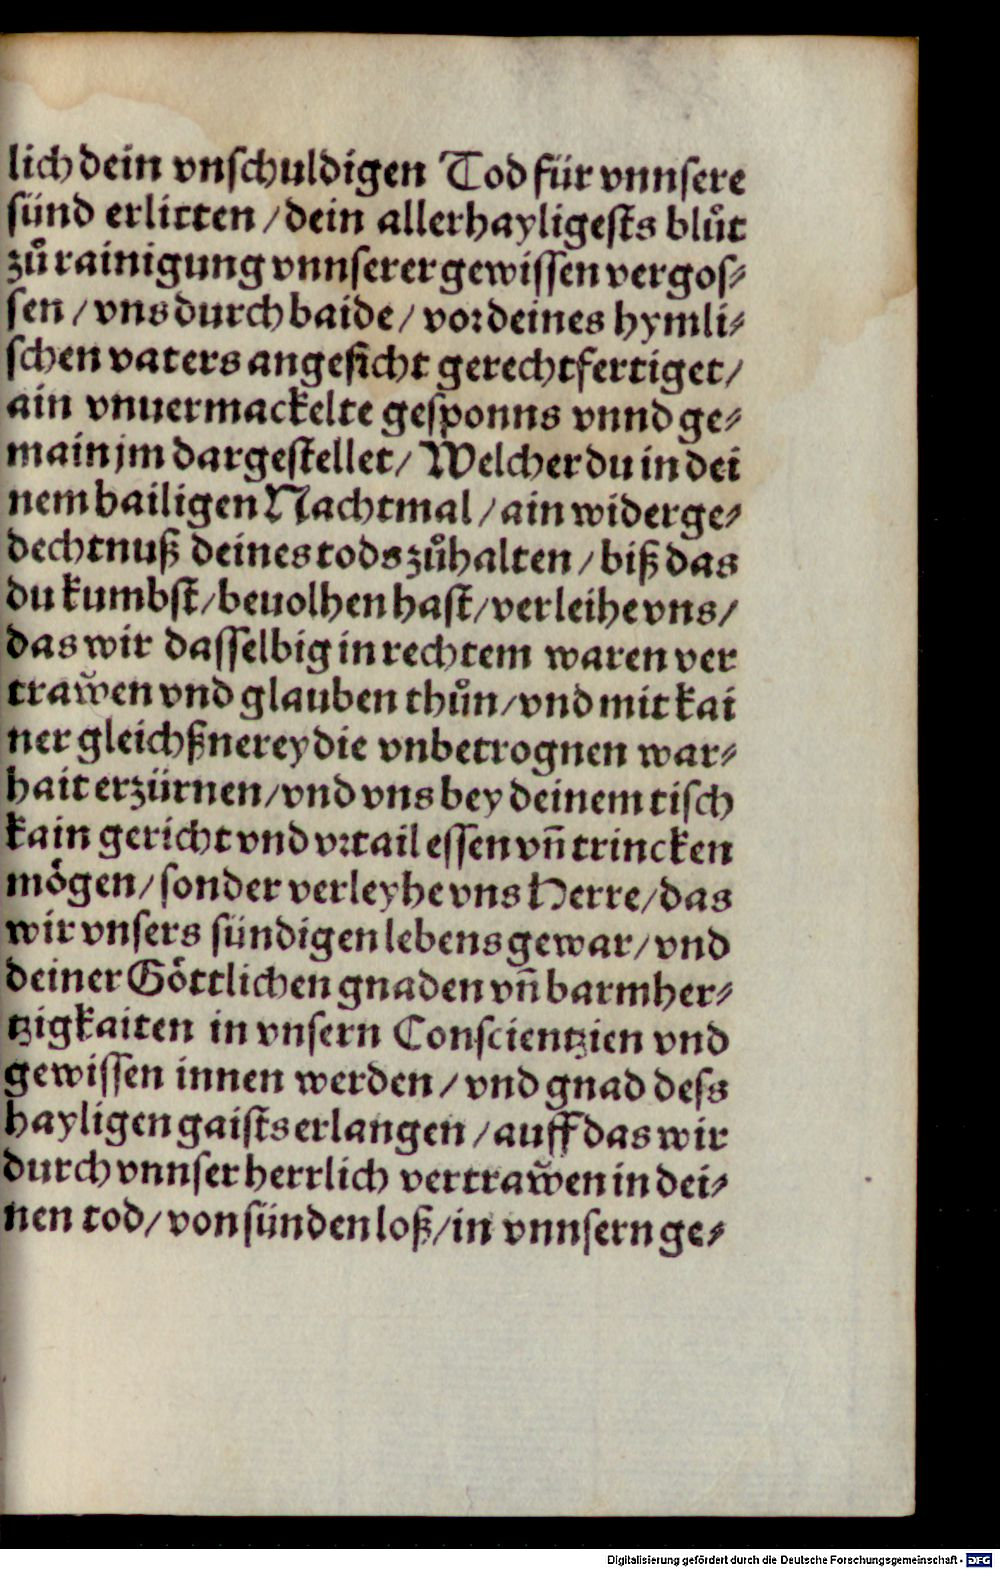 lich dein vnschuldigen Tod für vnnsere
sünd erlitten / dein allerhayligests blůt
zů rainigung vnnserer gewissen vergos⸗
sen / vns durch baide / vor deines hymli⸗
schen vaters angesicht gerechtfertiget /
ain vnuermackelte gesponns vnnd ge⸗
main jm dargestellet / Welcher du in dei
nem hailigen Nachtmal / ain widerge⸗
dechtnuß deines tods zůhalten / biß das
du kumbst / beuolhen hast / verleihe vns /
das wir dasselbig in rechtem waren ver
trawen vnd glauben thůn / vnd mit kai
ner gleichßnerey die vnbetrognen war⸗
hait erzürnen / vnd vns bey deinem tisch
kain gericht vnd vrtail essen vñ trincken
mögen / sonder verleyhe vns Herre / das
wir vnsers sündigen lebens gewar / vnd
deiner Göttlichen gnaden vñ barmher⸗
tzigkaiten in vnsern Conscientzien vnd
gewissen innen werden / vnd gnad dess
hayligen gaists erlangen / auff das wir
durch vnnser herrlich vertrawen in dei⸗
nen tod / von sünden loß / in vnnsern ge⸗
Digitalisierung gefördert durch die Deutsche Forschungsgemeinschaft - DFG